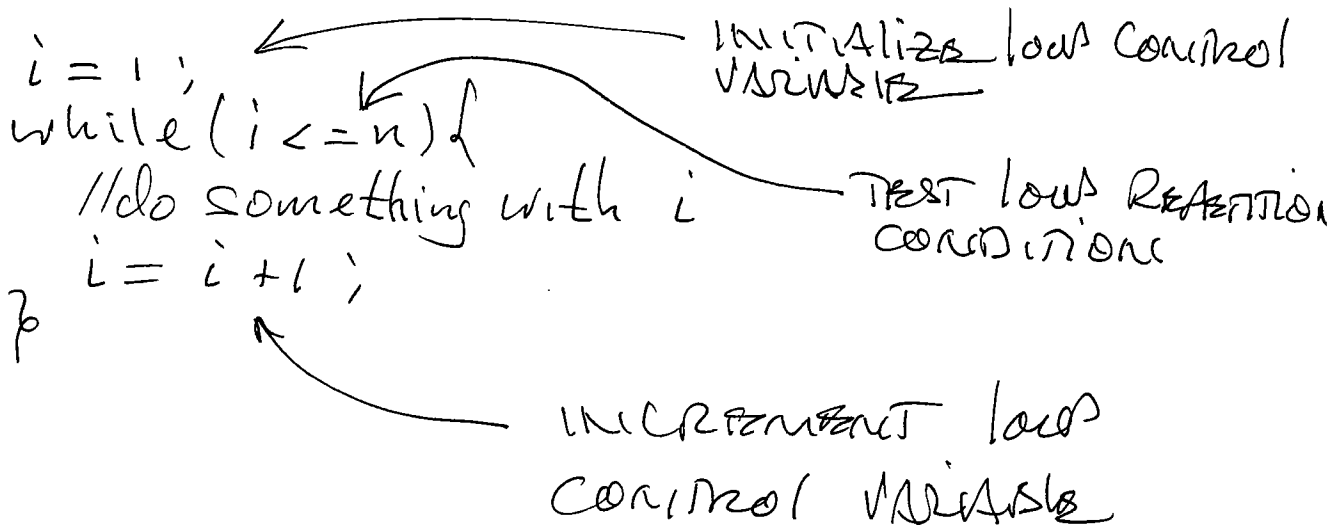 i = 1 ;
while ( i <= n ) {
//do something with i
i = i + 1 ;
}
INITIALIZE loop CONTROL
VARIABLE
TEST loop REPETITION
CONDITION
INCREMENT loop
CONTROL VARIABLE